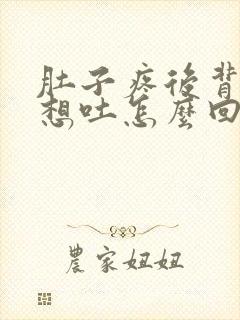 肚子疼後背
想吐怎麼回
農家妞妞